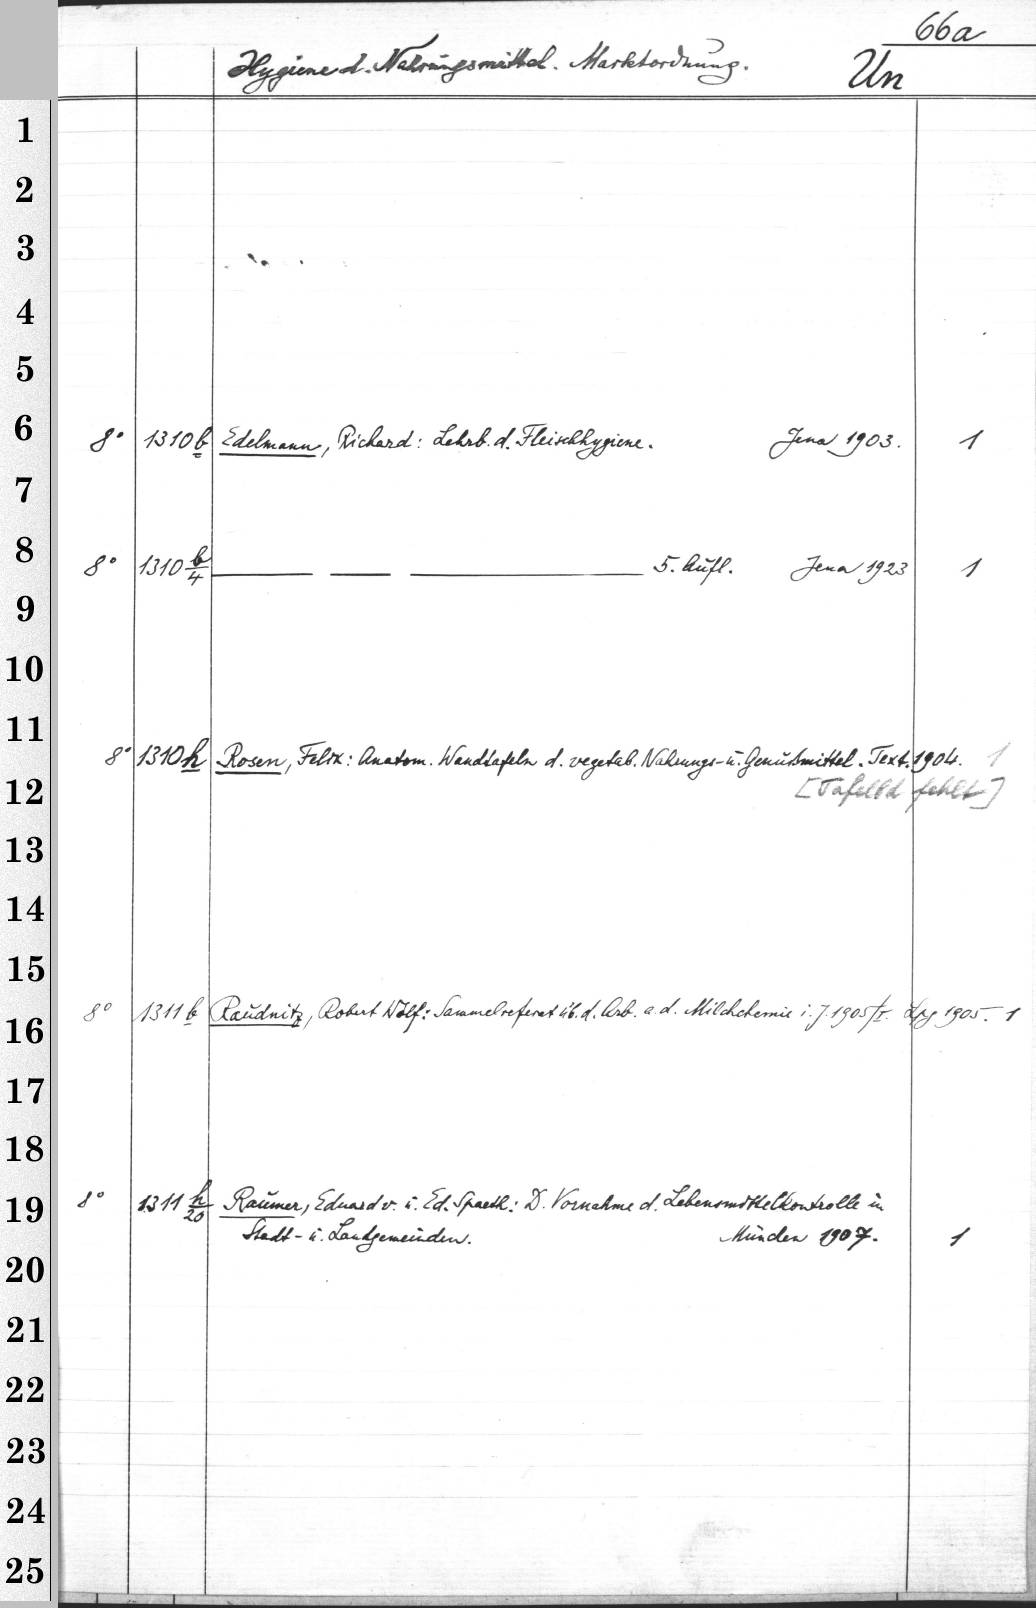 66a
Hygiene d. Nahrungsmittel. Marktordnung. Un
1
2
3
4
5
6
8° 1310 b Edelmann, Richard: Lehrb. d. Fleischhygiene. Jena 1903. 1
7
8
8° 1310 b/4 5. Aufl. Jena 1923 1
9
10
11
8° 1310 h Rosen, Felix: Anatom. Wandtafeln d. vegetab. Nahrungs- u. Genußmittel. Text. 1904. 1
12 [Tafelbd fehlt]
13
14
15
8° 1311 b Raudnitz, Robert Wolf: Sammelreferat üb. d. Arb. a. d. Milchchemie i. J. 1905/I. Lpz 1905. 1
16
17
18
19 8° 1311 h/20 Raumer, Eduard v. u. Ed. Spaeth: D. Vornahme d. Lebensmittelkontrolle in
Stadt- u. Landgemeinden. München 1907. 1
20
21
22
23
24
25